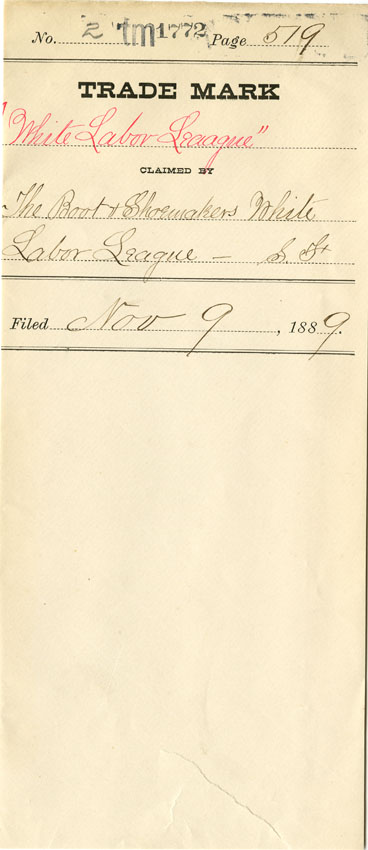 No. 2 tm 1772 Page 519
TRADE MARK
"White Labor Leaague"
CLAIMED BY
The Boot & Shoemakers White
Labor League — S. F.
Filed Nov 9, 1889.